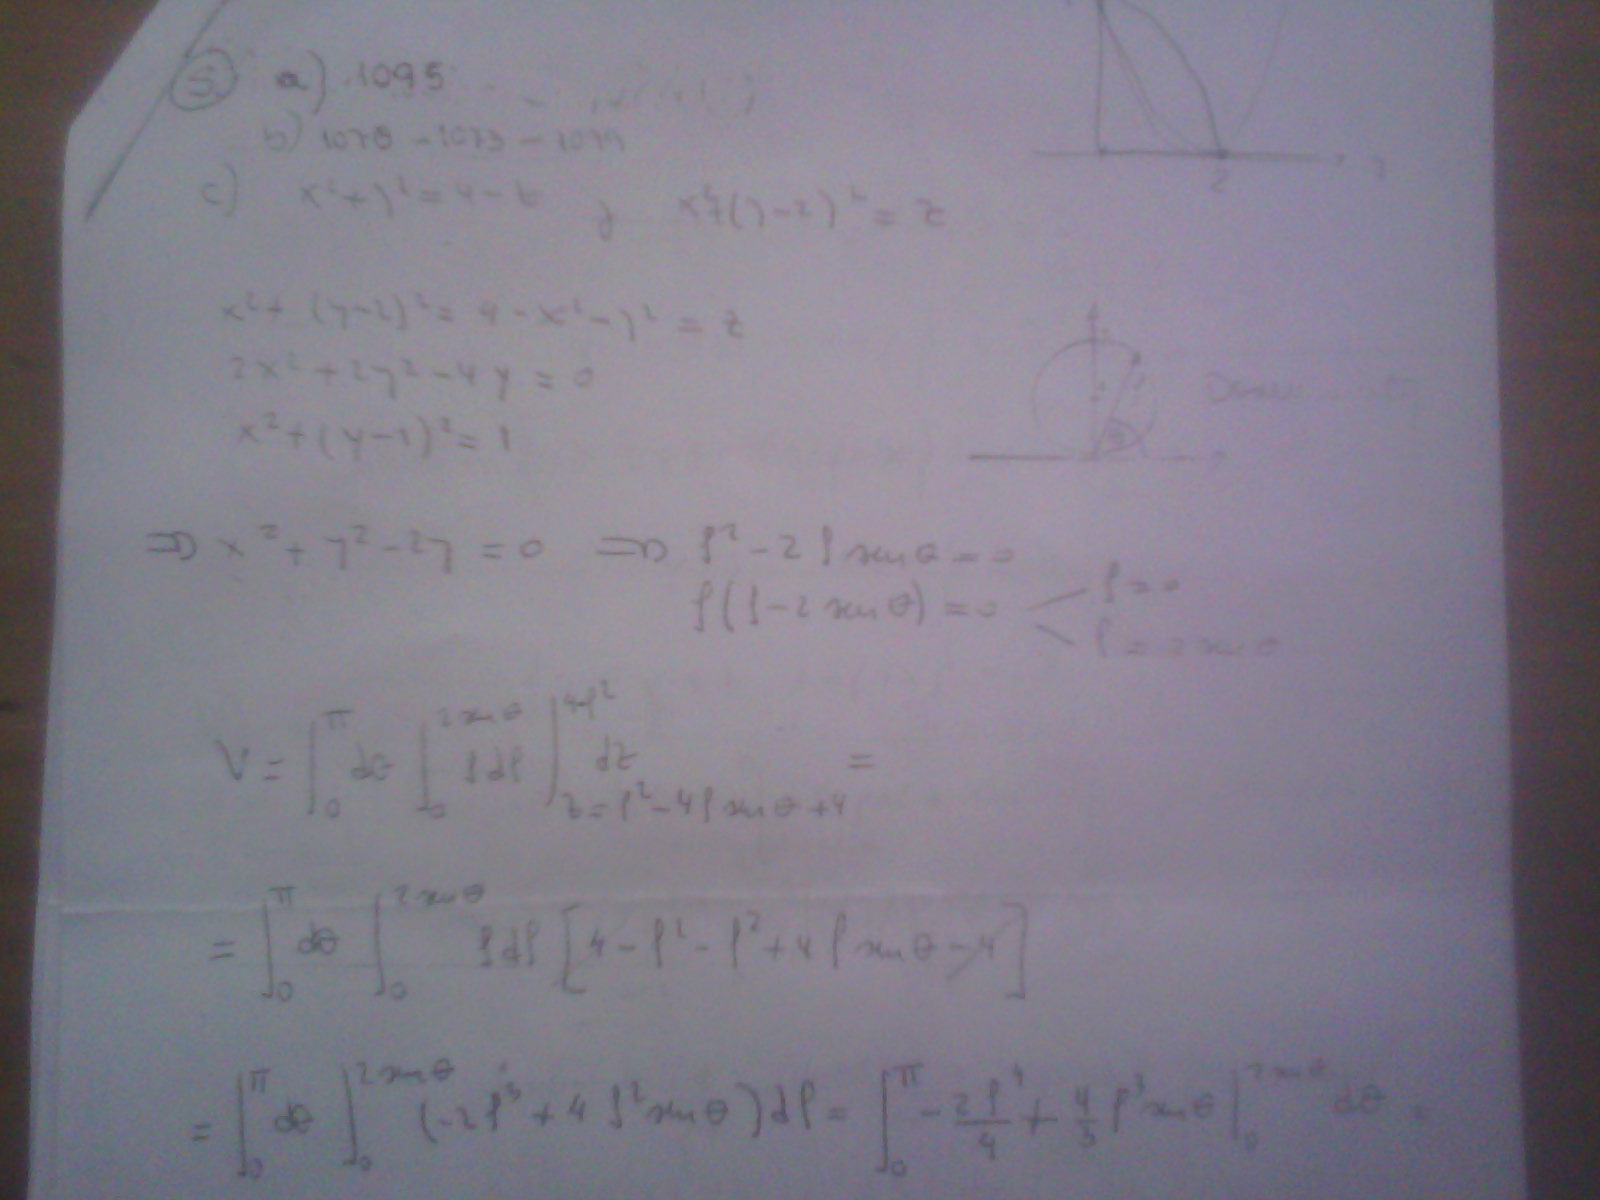 5 a) 1095
b) 1078 - 1073 - 1079
c) x² + y² = 4 - z y x² + (y-2)² = z
2
x² + (y-2)² = 4 - x² - y² = z
2x² + 2y² - 4y = 0
x² + (y-1)² = 1
⇒ x² + y² - 2y = 0 ⇒ ρ² - 2ρ sen θ = 0
ρ(ρ - 2 sen θ) = 0 ρ = 0
ρ = 2 sen θ
V = ∫₀^π dθ ∫₀^{2 sen θ} ρ dρ ∫_{z=ρ²-4ρ sen θ+4}^{4-ρ²} dz =
= ∫₀^π dθ ∫₀^{2 sen θ} ρ dρ [4 - ρ² - ρ² + 4ρ sen θ - 4]
= ∫₀^π dθ ∫₀^{2 sen θ} (-2ρ³ + 4ρ² sen θ) dρ = ∫₀^π -2ρ⁴/4 + 4/3 ρ³ sen θ |₀^{2 sen θ} dθ =